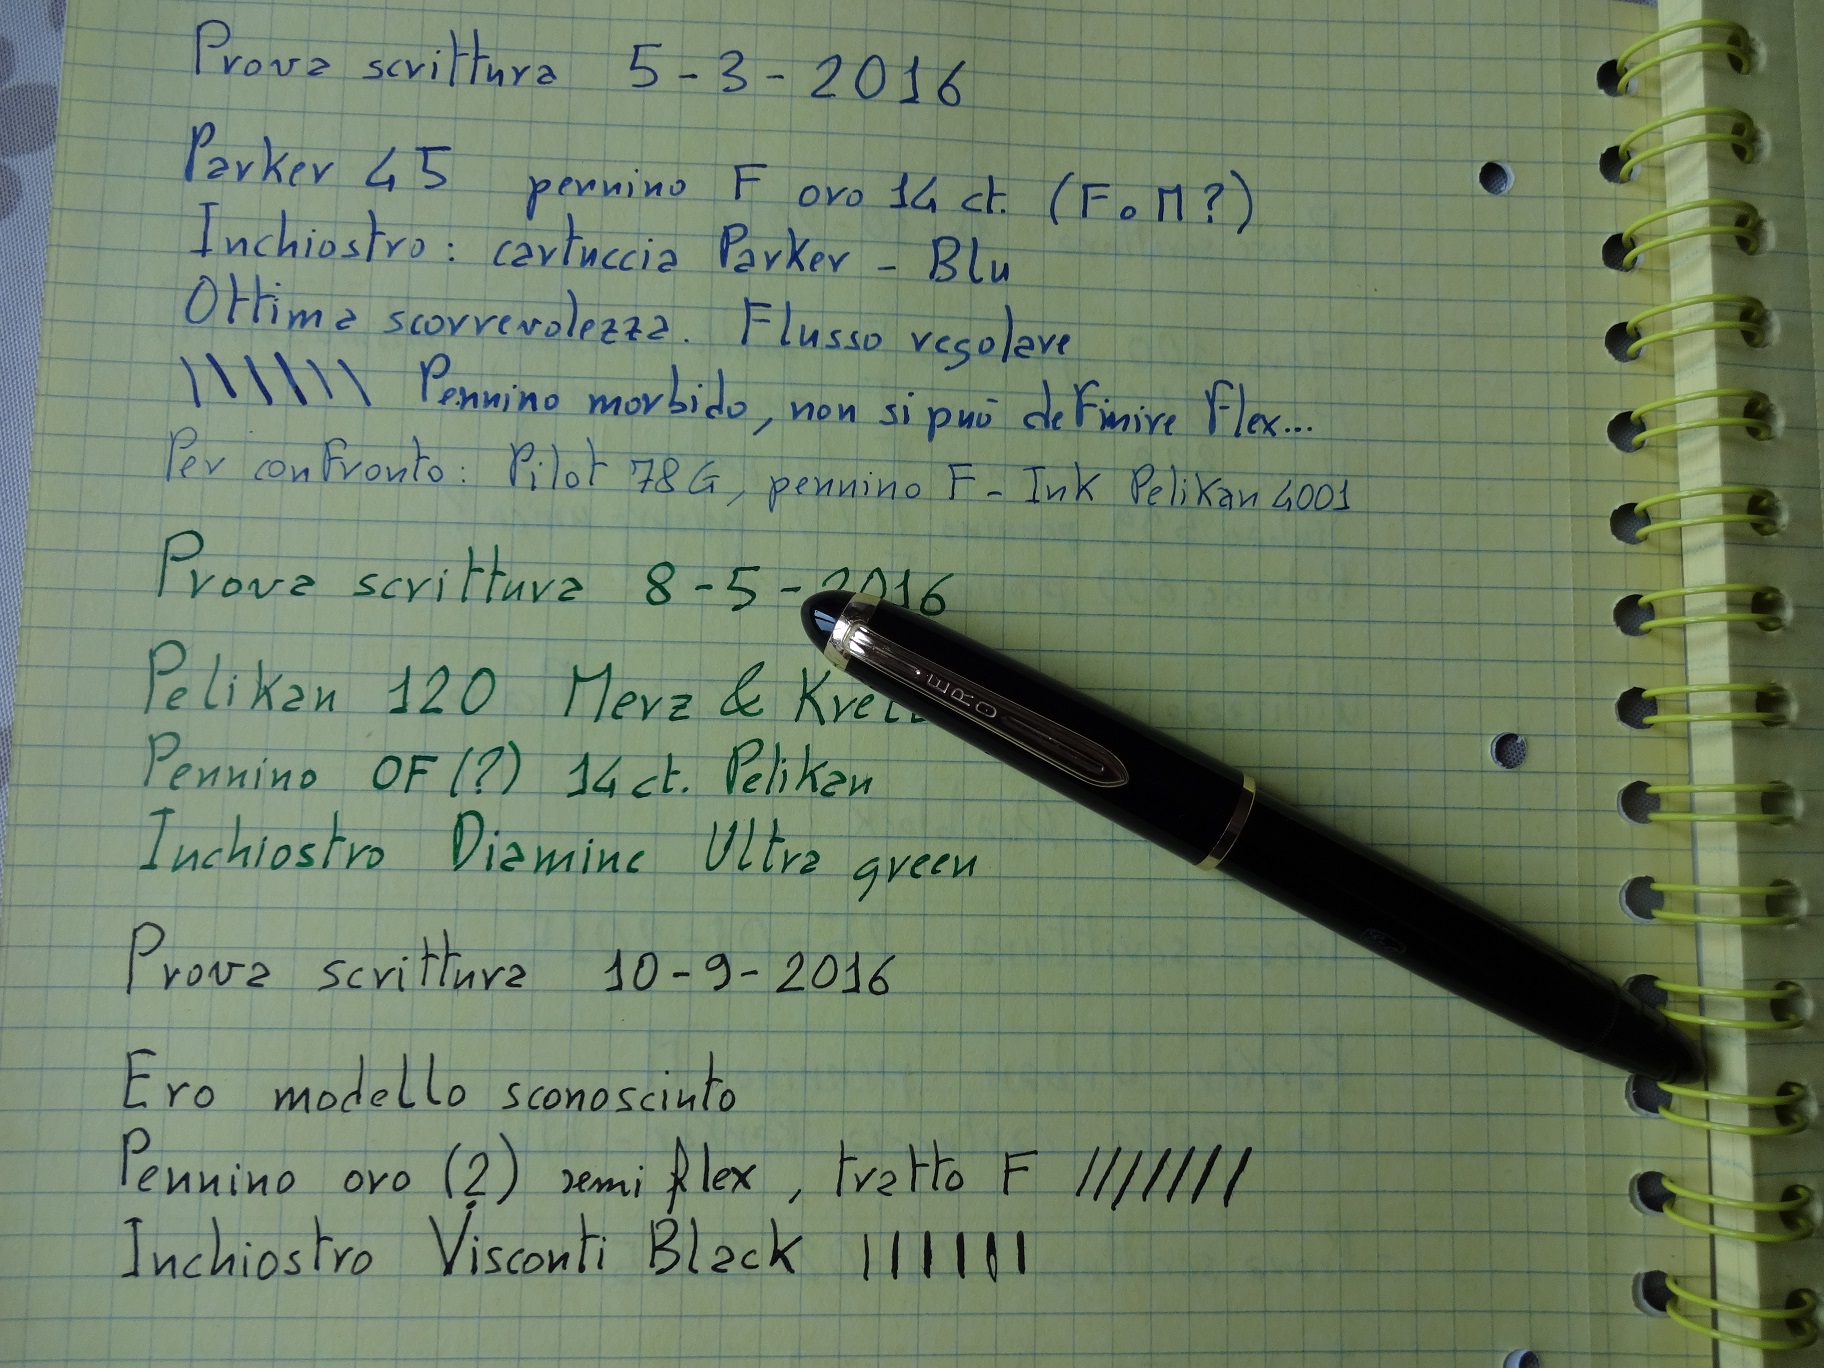 Prova scrittura 5-3-2016
Parker 45 pennino F oro 14 ct. (F o M?)
Inchiostro: cartuccia Parker - Blu
Ottima scorrevolezza. Flusso regolare
Pennino morbido, non si può definire flex...
Per confronto: Pilot 78G, pennino F - Ink Pelikan 4001
Prova scrittura 8-5-2016
Pelikan 120 Merz & Krell
ERO
Pennino OF (?) 14 ct. Pelikan
Inchiostro Diamine Ultra green
Prova scrittura 10-9-2016
Ero modello sconosciuto
Pennino oro (?) semi flex, tratto F
Inchiostro Visconti Black